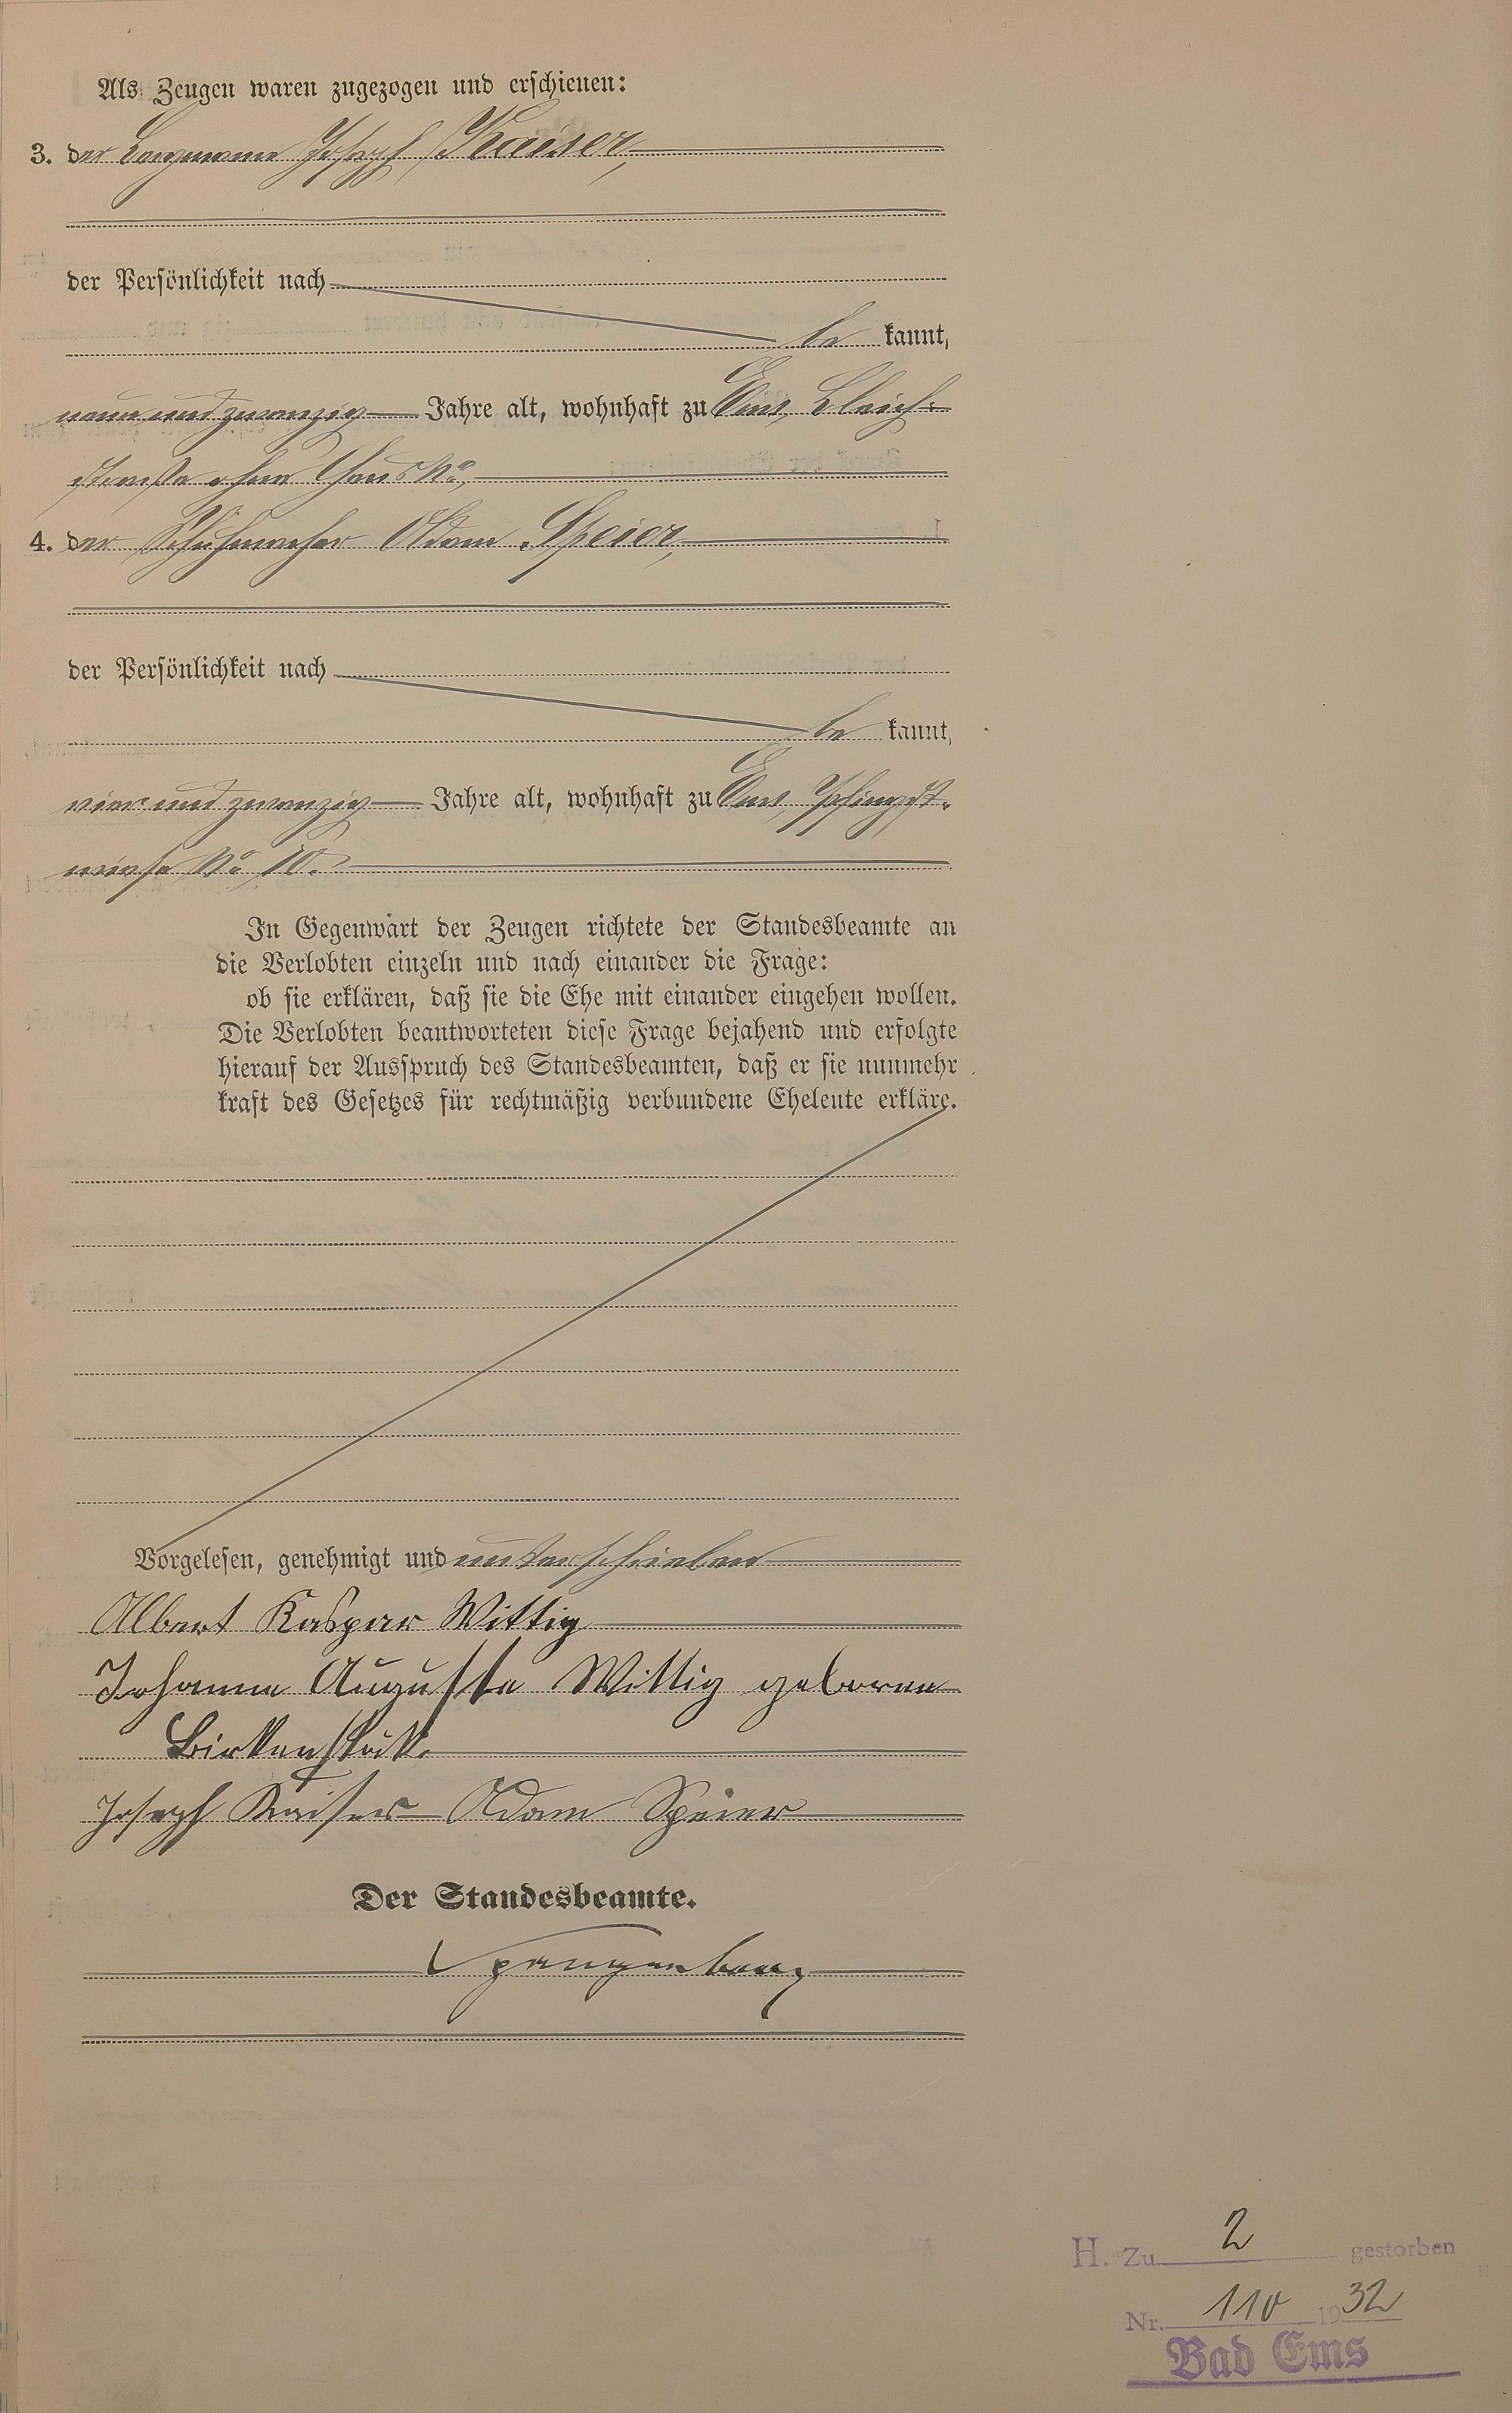 Als Zeugen waren zugezogen und erschienen:
3. der Bergmann Joseph Kaiser,
der Persönlichkeit nach
be kannt,
neun und zwanzig Jahre alt, wohnhaft zu Ems, Bleich-
straße ohne Haus No.,
4. der Schuhmacher Adam Speier,
der Persönlichkeit nach
be kannt,
vier und zwanzig Jahre alt, wohnhaft zu Ems, Pfingst-
wiese No. 10.
In Gegenwart der Zeugen richtete der Standesbeamte an
die Verlobten einzeln und nach einander die Frage:
ob sie erklären, daß sie die Ehe mit einander eingehen wollen.
Die Verlobten beantworteten diese Frage bejahend und erfolgte
hierauf der Ausspruch des Standesbeamten, daß er sie nunmehr
kraft des Gesetzes für rechtmäßig verbundene Eheleute erkläre.
Vorgelesen, genehmigt und unterschrieben
Albert Kaspar Wittig
Johanna Auguste Wittig geborene
Birkenstock.
Joseph Kaiser Adam Speier
Der Standesbeamte.
Spangenberg
H. Zu 2 gestorben
Nr. 110 1932
Bad Ems